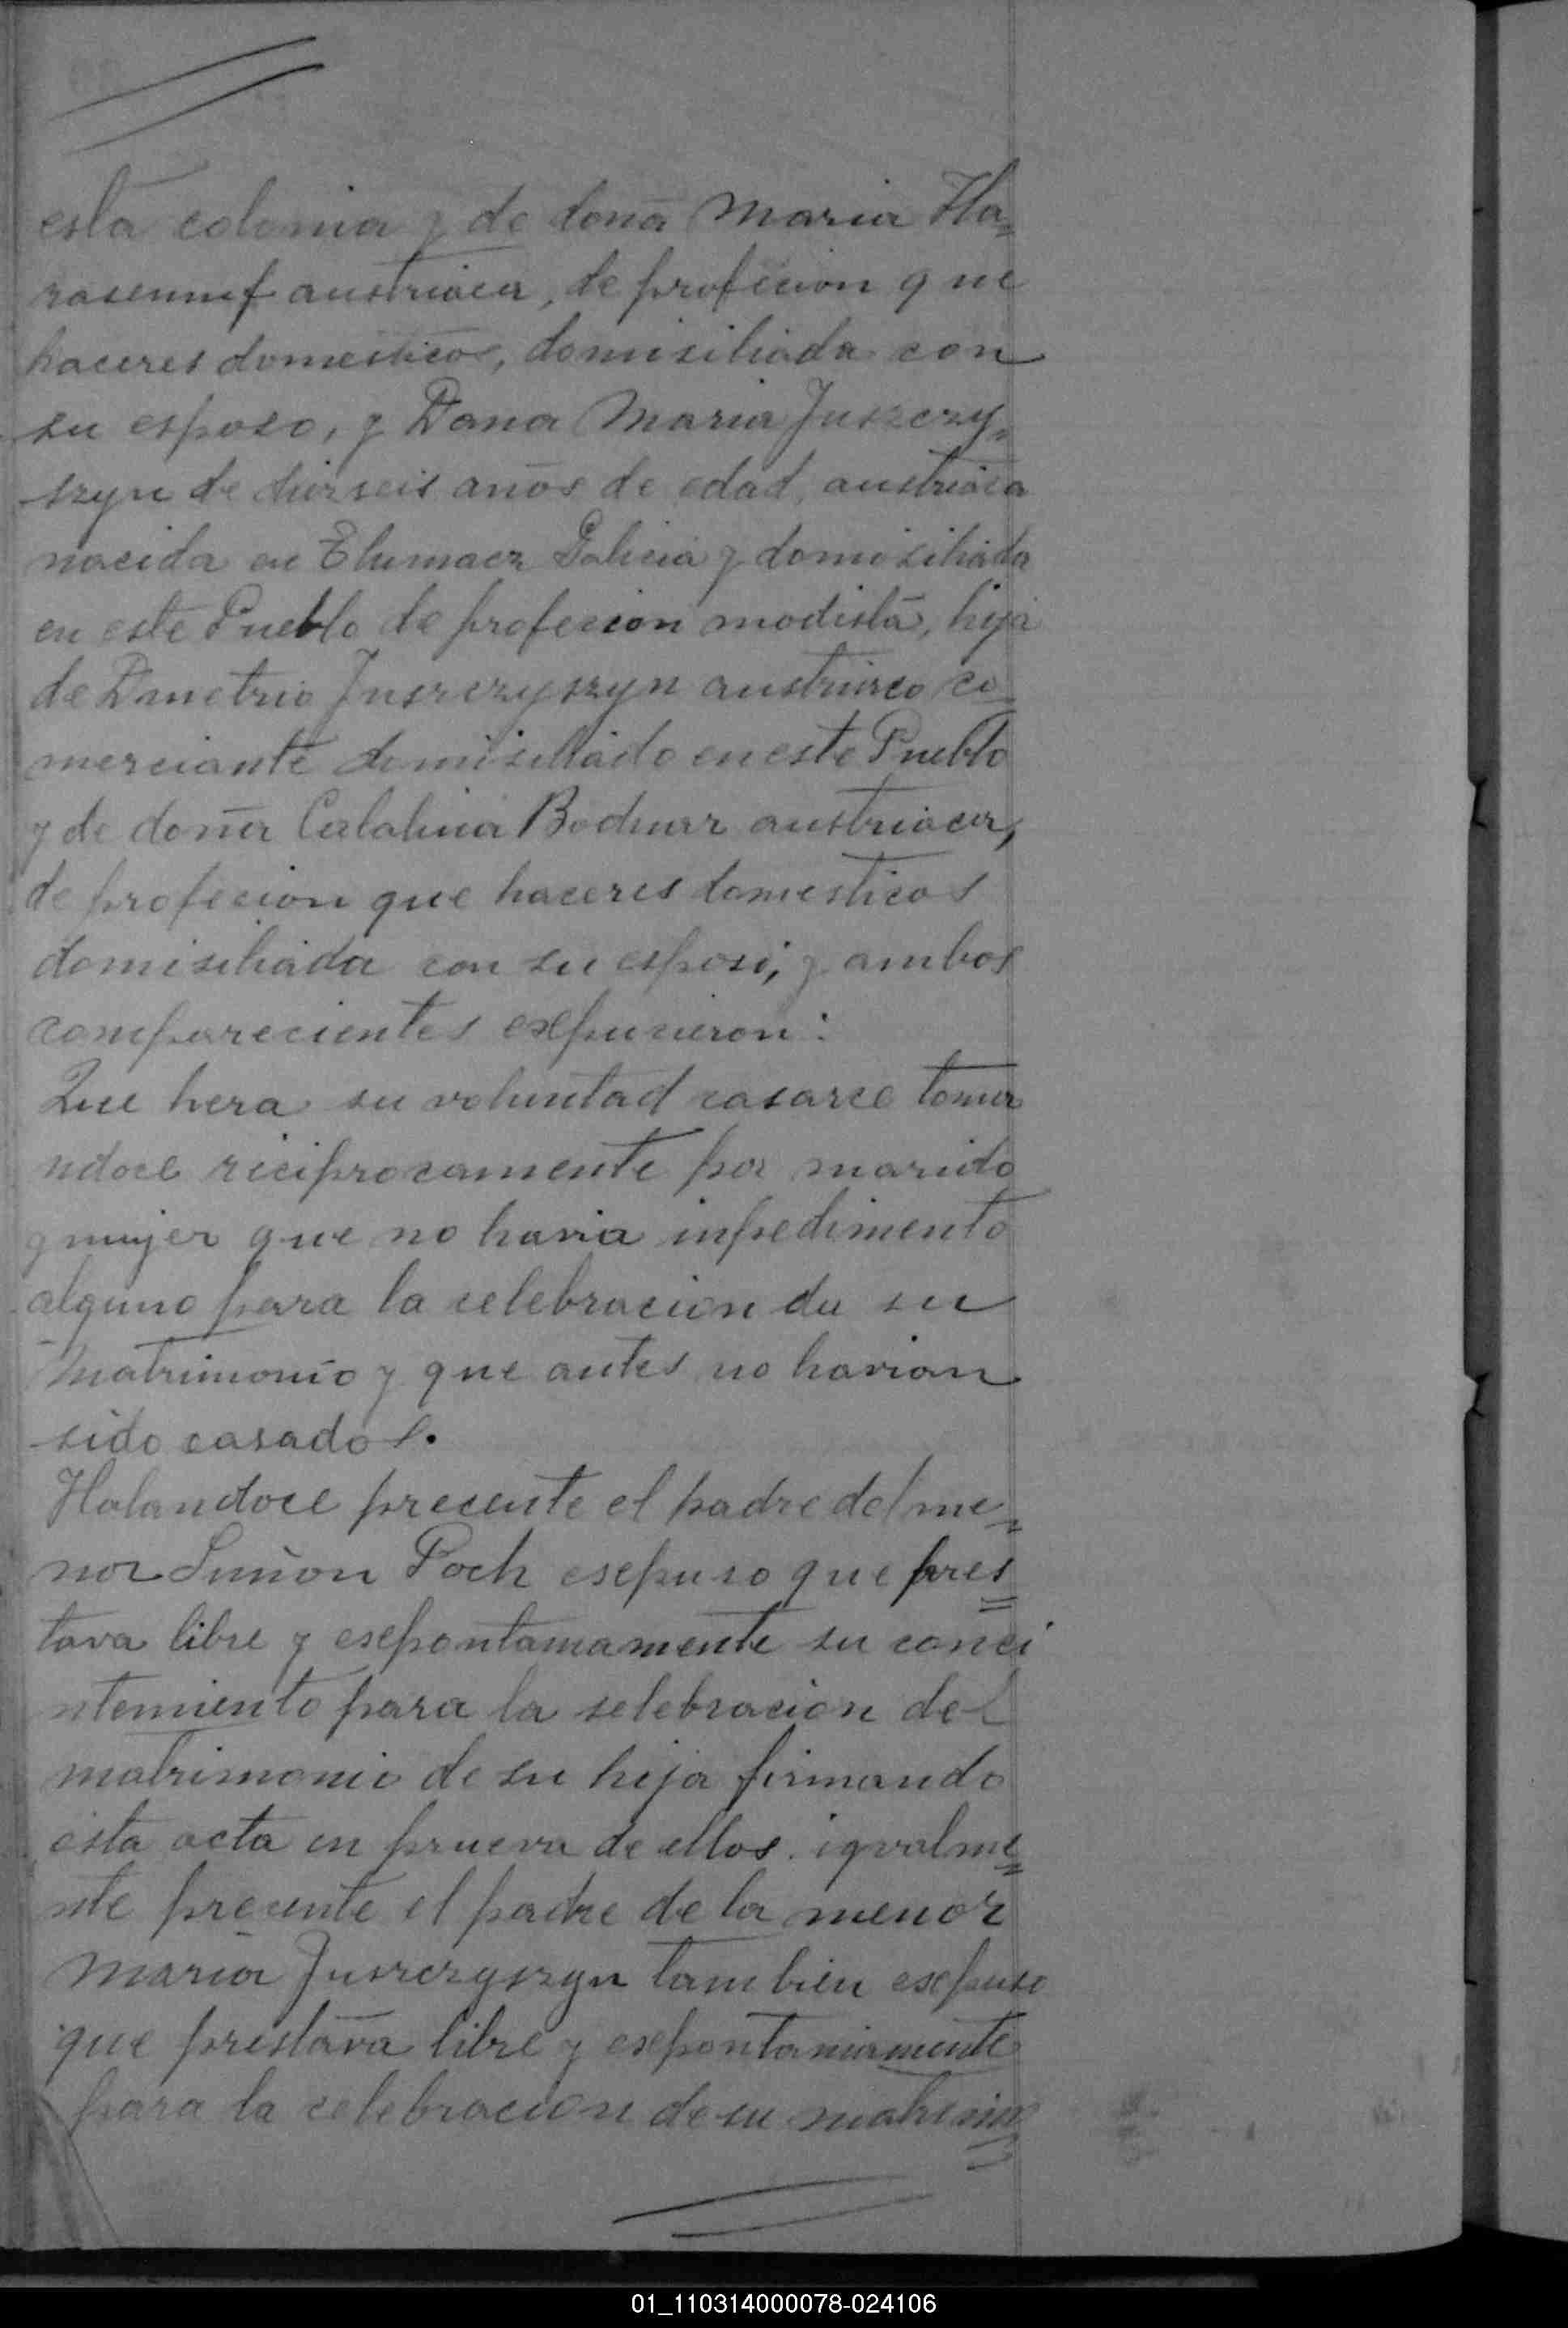 esta colonia y de doña Maria Ha=
rasemuf austriaca, de profecion que
haceres domesticos, domisiliada con
su esposo, y Dana Maria Juszczy=
szyn de dierseis años de edad, austriaca
nacida en Tlumacz Galicia y domisiliada
en este Pueblo de profecion modista, hija
de Dmetrio Juszczyszyn austriaco co=
merciante domisiliado en este Pueblo
y de doña Catalina Bodnar austriaca,
de profecion que haceres domesticos
domisiliada con su esposi, y ambos
comparecientes exepucieron:
Que hera su voluntad casarce toman
ndoce reciprocamente por marido
y mujer que no havia inpedimento
alguno para la celebracion du su
matrimonio y que antes no havian
sido casados.
Halandoce precente el padre del me=
nor Simon Poch esepuso que pres=
tava libre y esepontamamente su conci
ntemiento para la selebracion del
matrimonio de su hija firmando
esta acta en prueva de ellos. iqvalme=
nte precente el padre de la menor
Maria Juszczyszyn tambien esepuso
que prestava libre y esepontaniamente
para la celebracion de su matrimo=
01_110314000078-024106